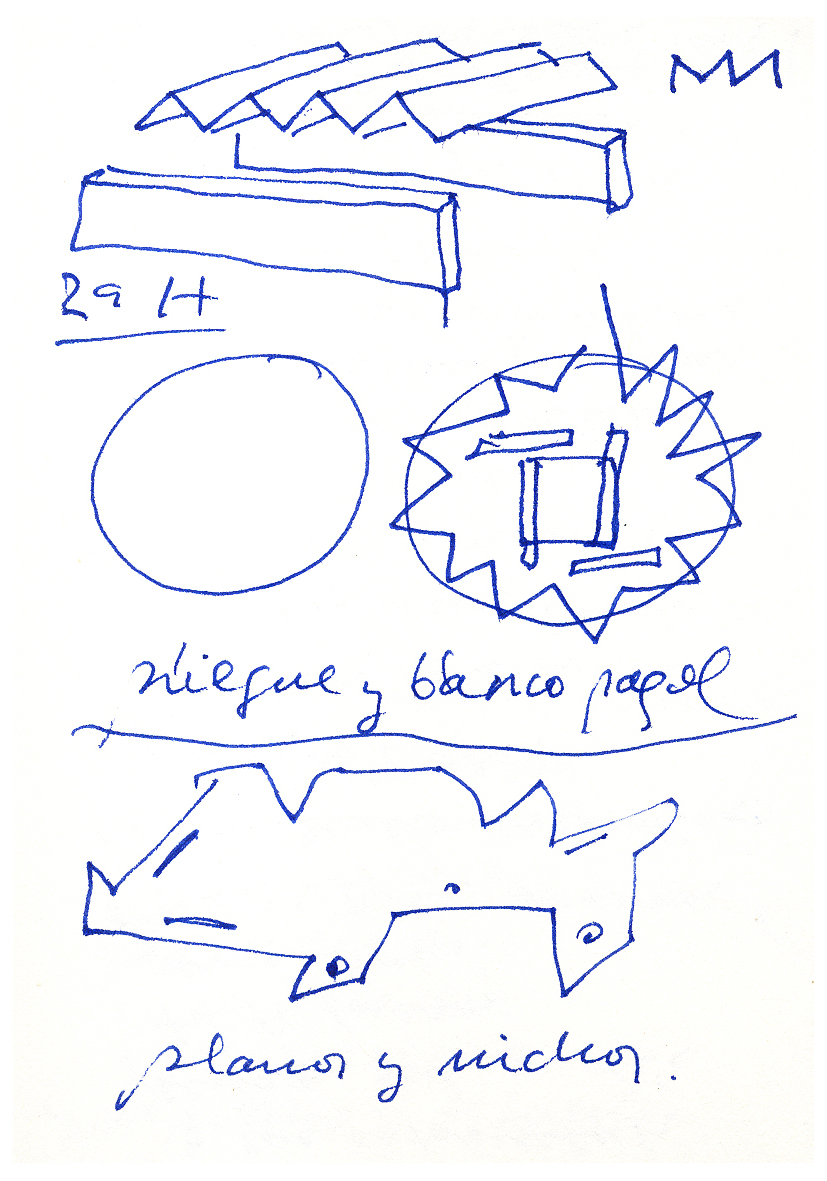 2ª H
pliegue y blanco papel
planos y nichos.